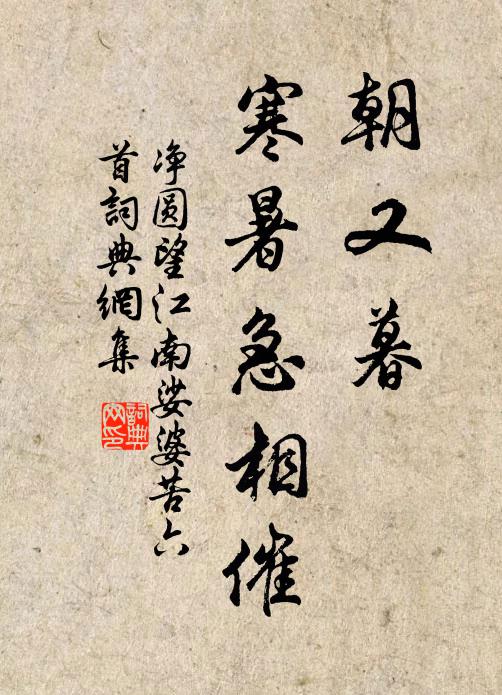 朝又暮
寒暑急相催
净圆望江南娑婆苦六
首詞典網集
詞典网印